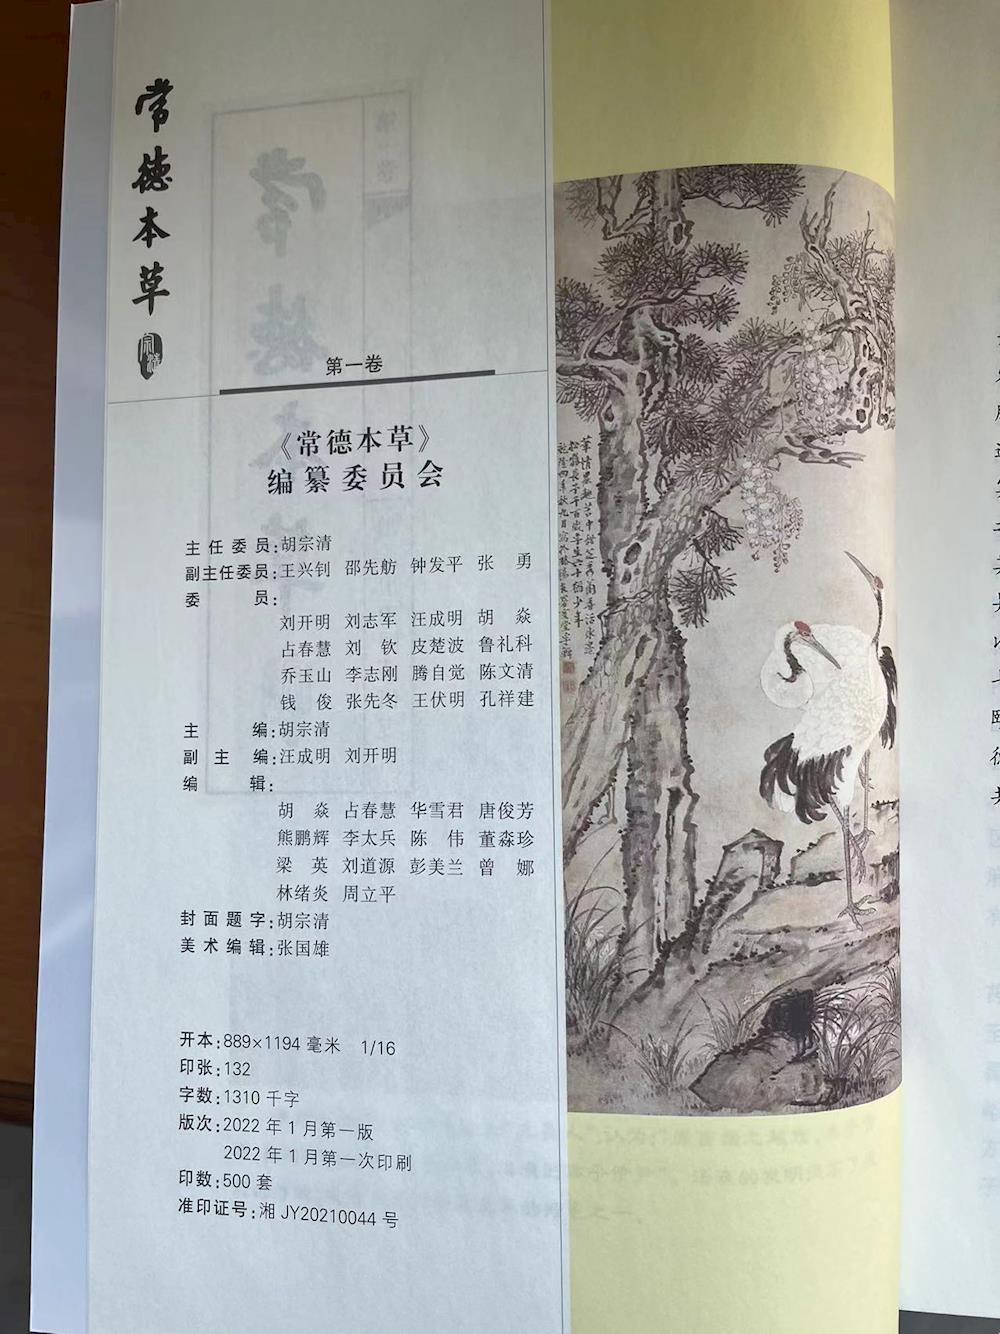 常德本草
第一卷
《常德本草》
编纂委员会
主任委员:胡宗清
副主任委员:王兴钊 邵先舫 钟发平 张 勇
委 员:
刘开明 刘志军 汪成明 胡 焱
占春慧 刘 钦 皮楚波 鲁礼科
乔玉山 李志刚 腾自觉 陈文清
钱 俊 张先冬 王伏明 孔祥建
主 编:胡宗清
副 主 编:汪成明 刘开明
编 辑:
胡 焱 占春慧 华雪君 唐俊芳
熊鹏辉 李太兵 陈 伟 董淼珍
梁 英 刘道源 彭美兰 曾 娜
林绪炎 周立平
封面题字:胡宗清
美术编辑:张国雄
开本:889×1194 毫米 1/16
印张:132
字数:1310 千字
版次:2022 年 1 月第一版
2022 年 1 月第一次印刷
印数:500 套
准印证号:湘 JY20210044 号